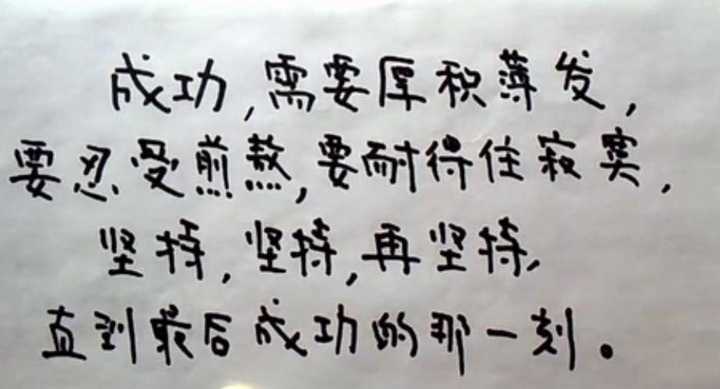 成功,需要厚积薄发,
要忍受煎熬,要耐得住寂寞,
坚持,坚持,再坚持,
直到最后成功的那一刻。